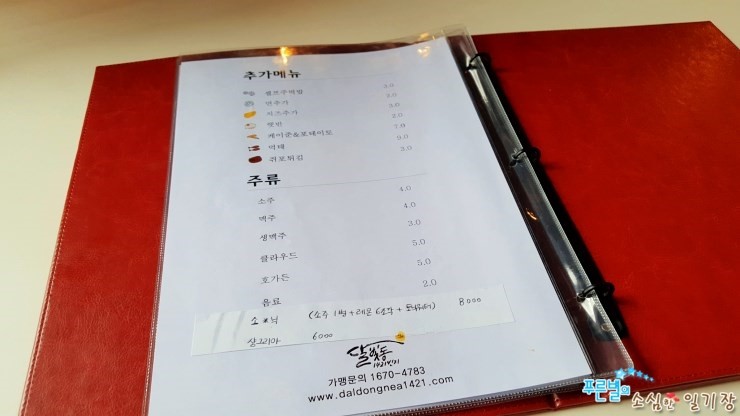 추가메뉴
셀프주먹밥 2.0
면추가 2.0
치즈추가 3.0
햇반 2.0
케이준&포테이토 7.0
먹태 9.0
쥐포튀김 3.0
주류
소주 4.0
맥주 4.0
생맥주 3.0
클라우드 5.0
호가든 5.0
음료 2.0
소토닉 (소주 1병 + 레몬 6조각 + 토닉워터) 8000
상그리아 6000
달빛동
1921번지
가맹문의 1670-4783
www.daldongnea1421.com
푸른별의 소심한 일기장